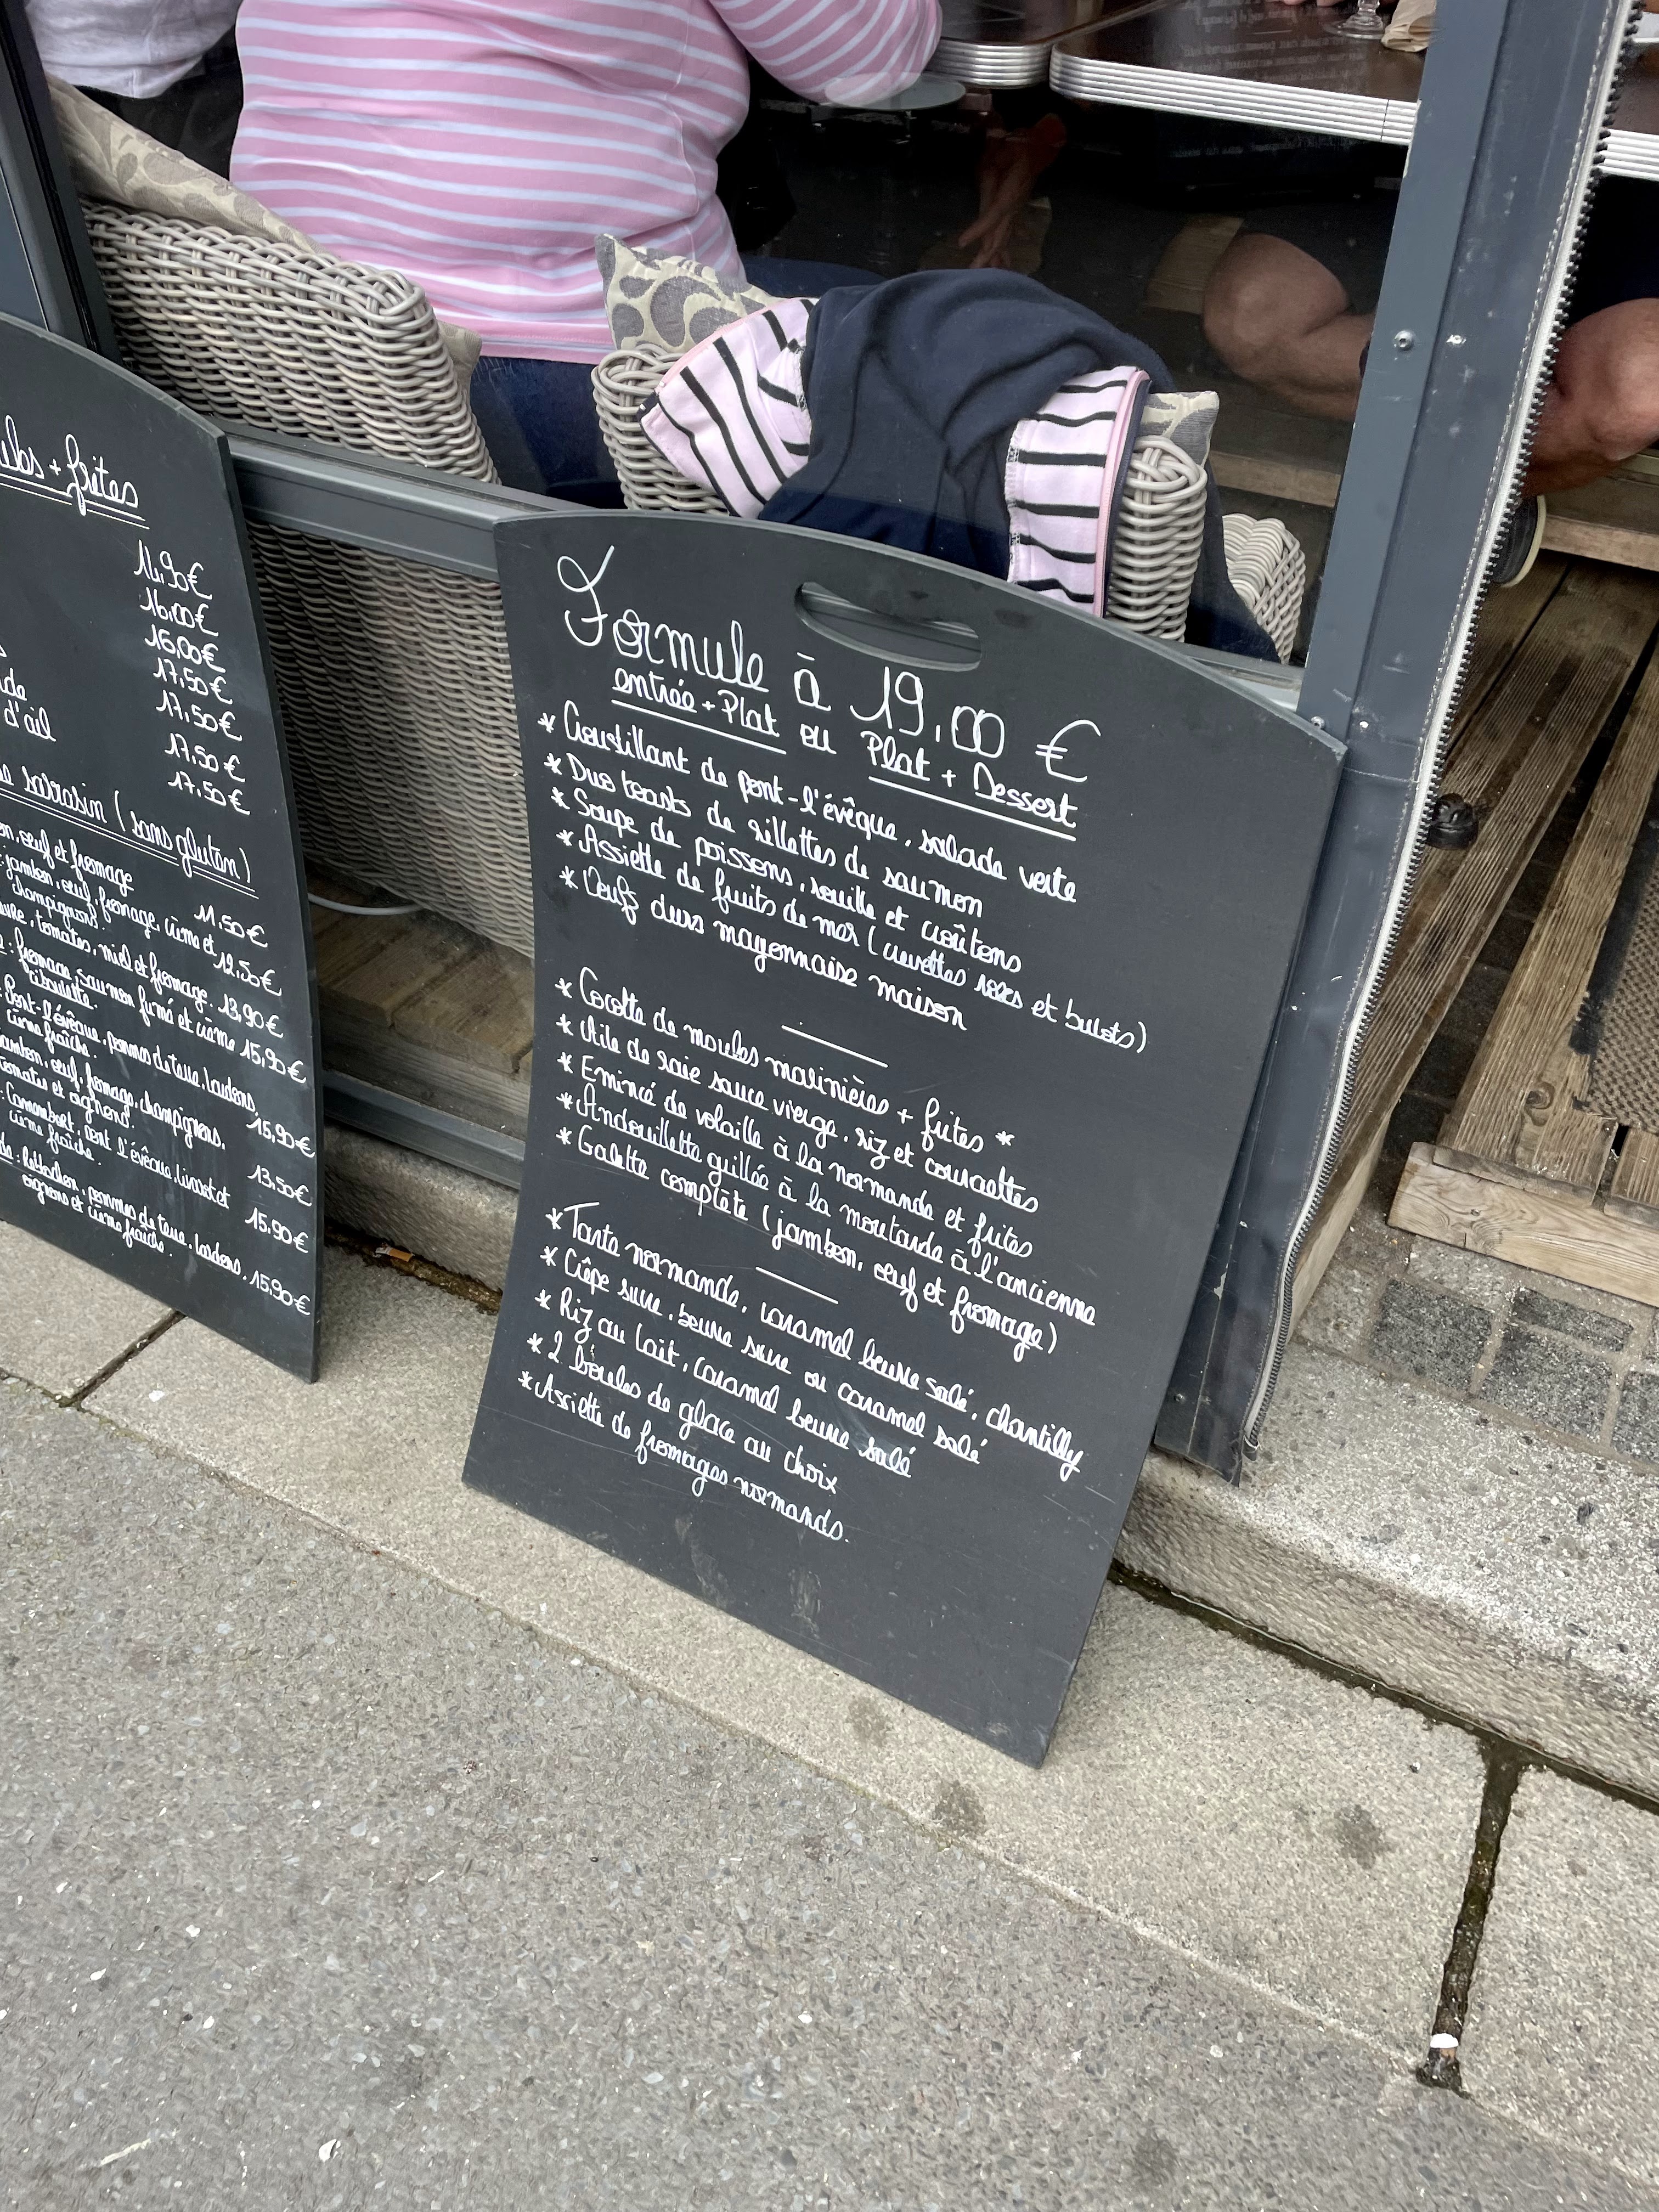 + frites
14,90€
16,00€
16,00€
17,50€
17,50€
d'ail
17,50€
17,50€
sarrasin (sans gluten)
oeuf et fromage
11,50€
jambon, oeuf, fromage, crème et
champignons.
12,50€
tomates, miel et fromage. 13,90€
: fromage, saumon fumé et crème
ciboulette.
15,90€
: Pont-l'évêque, pommes de terre, lardons,
crème fraîche.
15,90€
jambon, oeuf, fromage, champignons,
tomates et oignons.
13,50€
: Camembert, pont l'évêque, livarot et
crème fraîche.
15,90€
: Reblochon, pommes de terre, lardons,
oignons et crème fraîche.
15,90€
Formule à 19,00 €
entrée + Plat ou Plat + Dessert
* Croustillant de pont-l'évêque, salade verte
* Duo toasts de rillettes de saumon
* Soupe de poissons, rouille et croûtons
* Assiette de fruits de mer (crevettes roses et bulots)
* Oeufs durs mayonnaise maison
* Cocotte de moules marinières + frites *
* Aile de raie sauce vierge, riz et courgettes
* Emincé de volaille à la normande et frites
* Andouillette grillée à la moutarde à l'ancienne
* Galette complète (jambon, oeuf et fromage)
* Tarte normande, caramel beurre salé, chantilly
* Crêpe sucre, beurre sucre ou caramel salé
* Riz au lait, caramel beurre salé
* 2 boules de glace au choix
* Assiette de fromages normands.